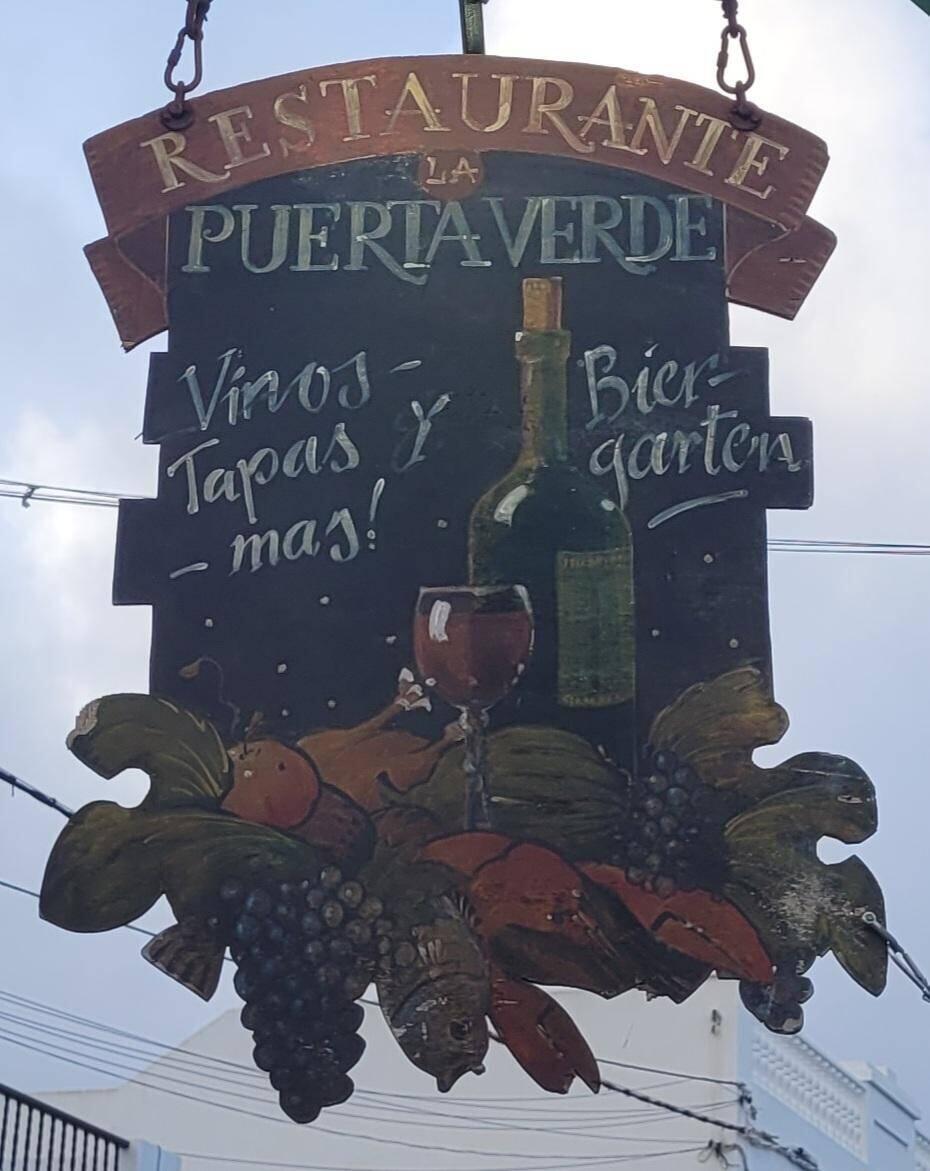 RESTAURANTE
LA
PUERTA VERDE
Vinos-
Tapas y
- mas!
Bier-
garten